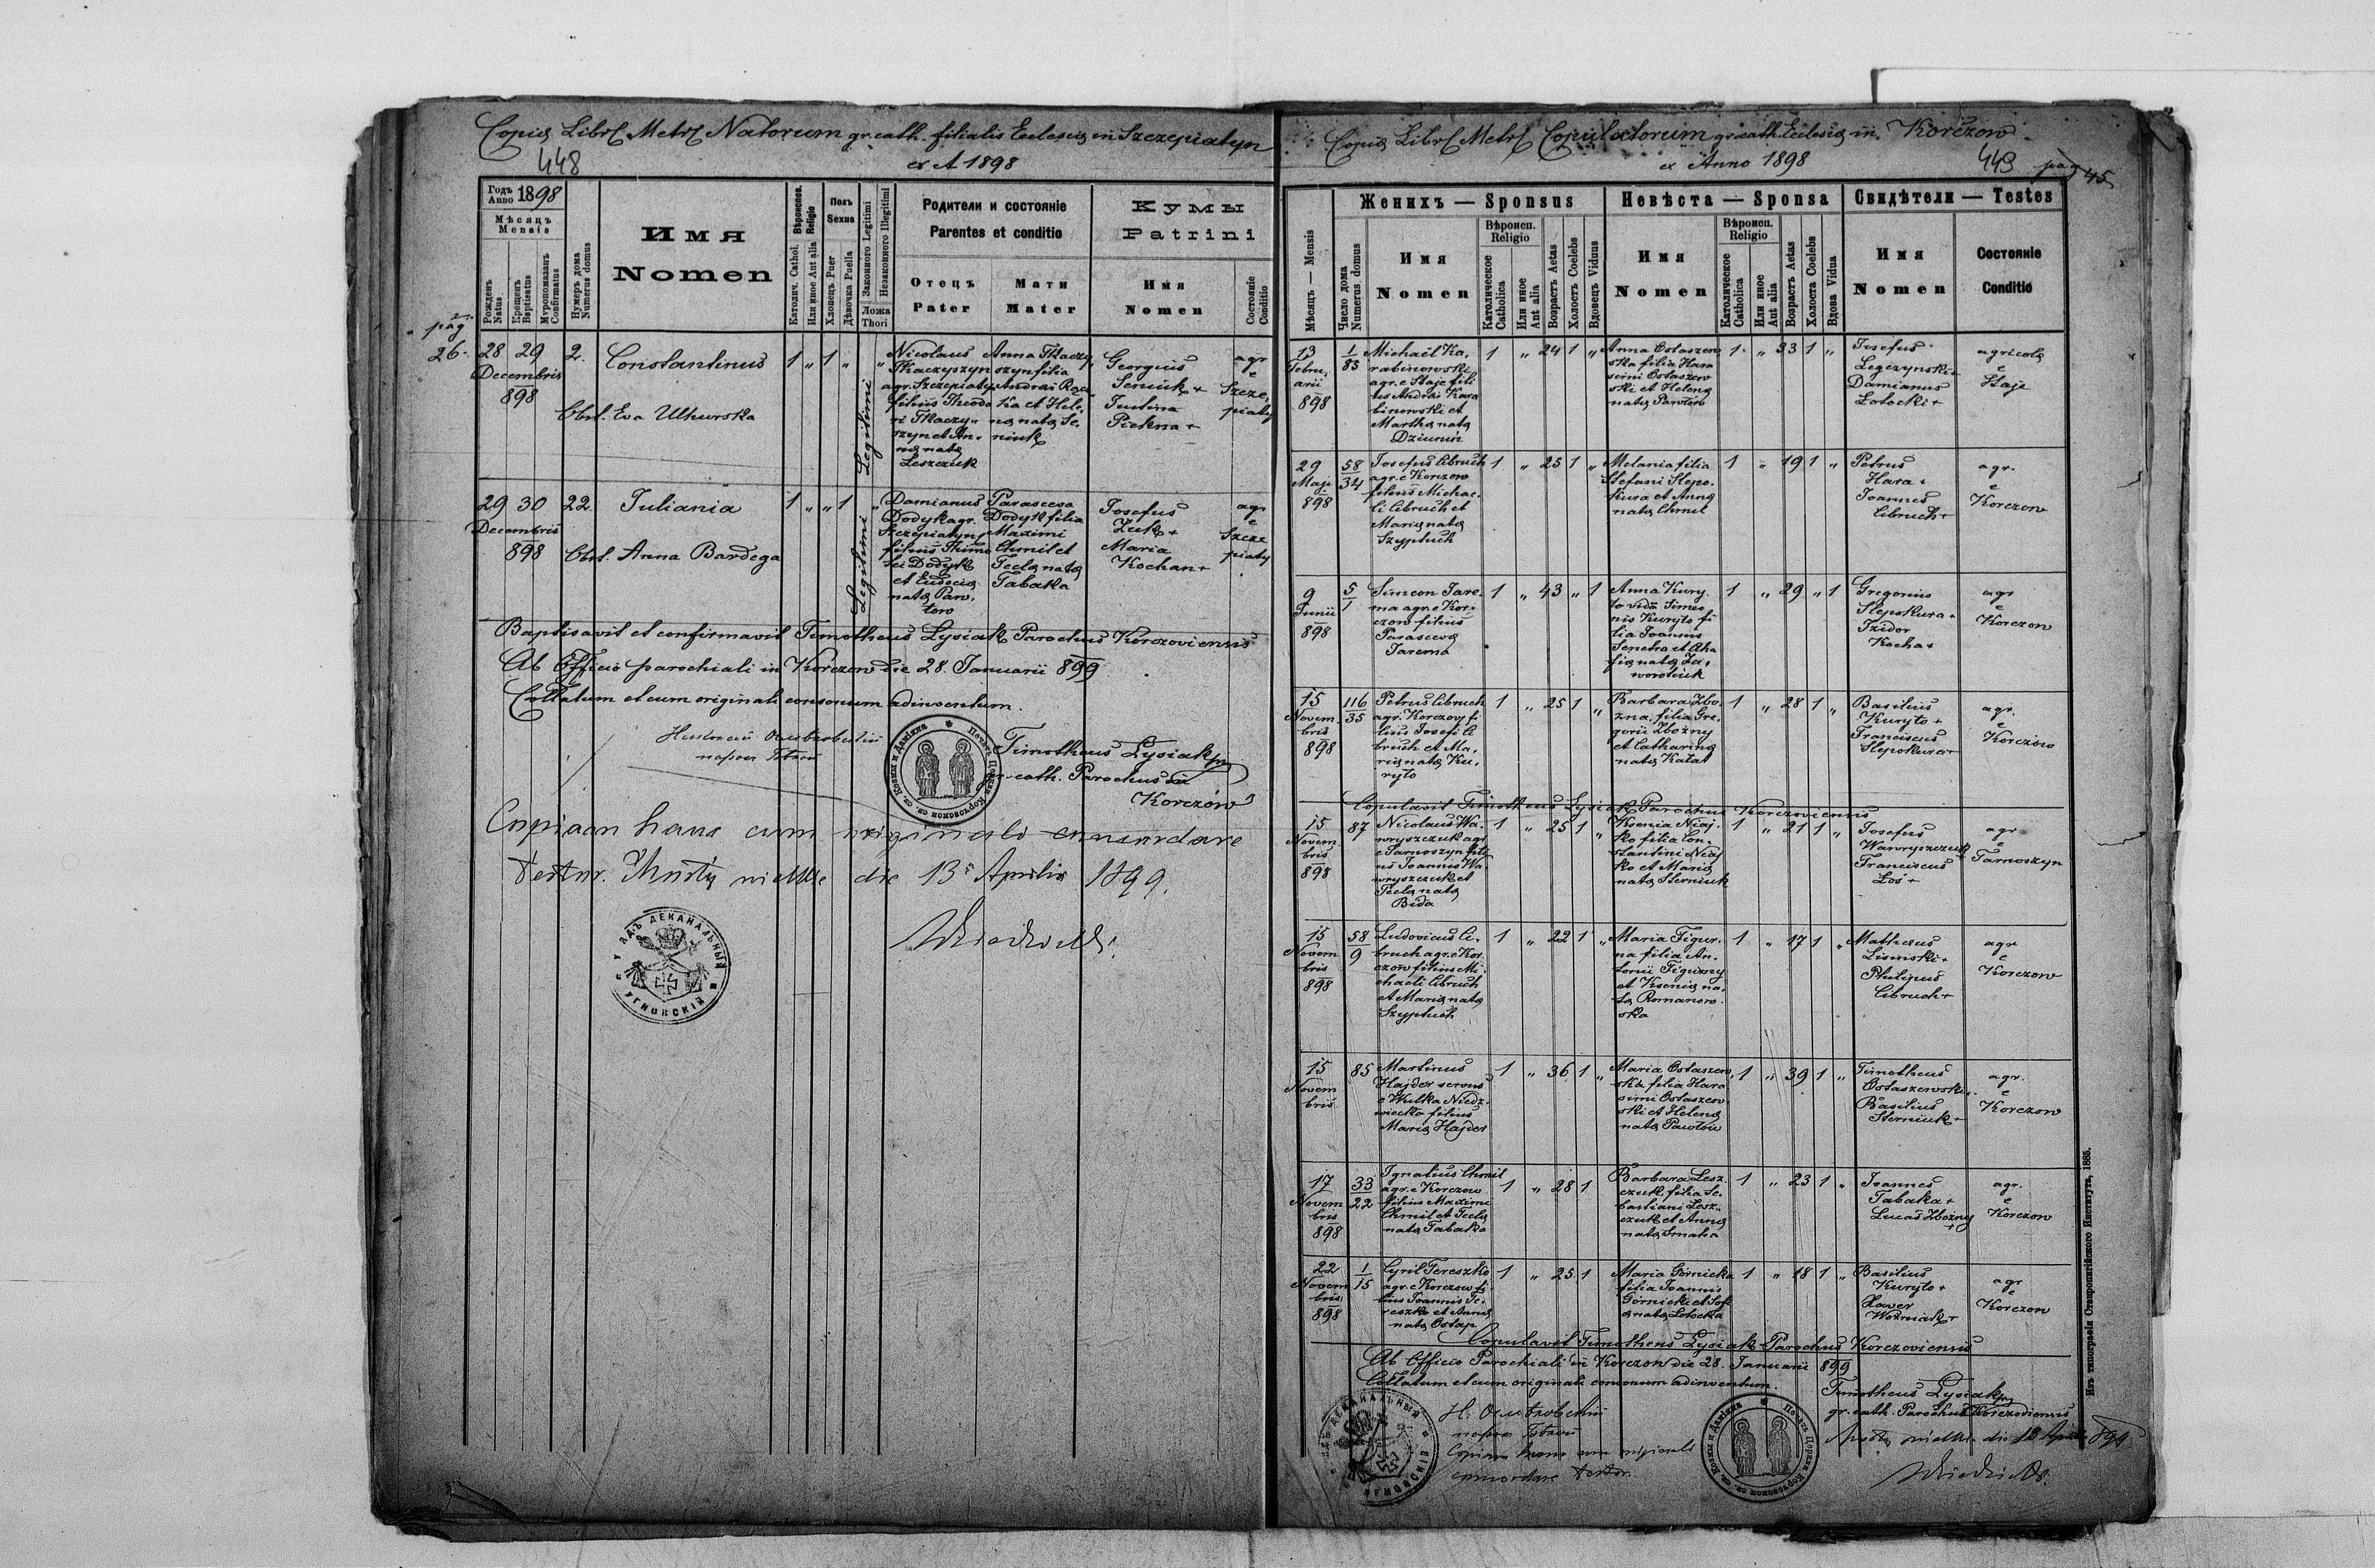 Copia Libri Metr Natorum gr. cath. filialis Ecclesia in Szczepiatyn
448
ex A 1898
Годъ Anno 1898
Мѣсяцъ
Mensis
Рожденъ Natus
Крещенъ Baptisatus
Муропомазанъ Confirmatus
Нумеръ дома Numerus domus
Имя
Nomen
Вѣроиспов. Religio
Католич. Cathol.
Или иное Aut alia
Полъ
Sexus
Хлопецъ Puer
Дѣвочка Puella
Законного Legitimi
Незаконного Illegitimi
Ложа
Thori
Родители и состоянiе
Parentes et conditio
Отецъ
Pater
Мати
Mater
Кумы
Patrini
Имя
Nomen
Состоянiе
Conditio
pag
26.
28 29 2. Constantinus 1 „ 1 „
Decembris
898
Obst. Eva Uhwrska
Legitimi
Nicolaus
Tkaczyszyn
agr. Szczepiaty
filius Theodo
ri Tkaczy
szyn et An
na nata
Leszczuk
Anna Tkaczy
szyn filia
Andrai Rac
ka et Hele
na nata Se
niuk
Georgius
Seniuk +
Justina
Piekna +
agr
e
Szcze
piaty
29 30 22. Juliania 1 „ „ 1
Decembris
898
Obst. Anna Bardega
Legitimi
Damianus
Dodyk agr.
Szczepiatyn
filius Thimo
fei Dodyk
et Eudocia
nata Paw
low
Parasceva
Dodyk filia
Maximi
Chmil et
Tecla nata
Tabaka
Josefus
Zuk +
Maria
Kochan +
agr
e
Szcze
piaty
Baptisavit et confirmavit Timotheus Lysiak Parochus Korczoviensis
Ab Officio parochiali in Korczow die 28. Januarii 899
Collatum et cum originali consonum adinventum.
Timotheus Lysiak
gr. cath. Parochus in
Korczów
Copiam hanc cum originali concordare
testor. Chusty die 13 Aprilis 1899.
УРЯДЪ ДЕКАНАЛЬНЫЙ УГНОВСКIЙ
Copia Libri Metr Copulatorum gr. cath. Ecclesia in Korczow
ex Anno 1898
449 pag 45
Мѣсяцъ — Mensis
Число дома
Numerus domus
Женихъ — Sponsus
Имя
Nomen
Вѣроисп.
Religio
Католическое
Catholica
Или иное
Aut alia
Возрастъ Aetas
Холостъ Coelebs
Вдовецъ Viduus
Невѣста — Sponsa
Имя
Nomen
Вѣроисп.
Religio
Католическое
Catholica
Или иное
Aut alia
Возрастъ Aetas
Холоста Coelebs
Вдова Vidua
Свидѣтели — Testes
Имя
Nomen
Состоянiе
Conditio
13
Febru
arii
898
1
83
Michaël Ka
rabinowski
agr. e Staje fili
us Andrai Kara
binowski et
Martha nata
Dziumin
1 „ 24 1 „
Anna Ostaszew
ska filia Hara
simi Ostaszew
ski et Helena
nata Pawlow
1 „ 33 1 „
Josefus
Legczynski +
Damianus
Lotocki +
agricola
e
Staje
29
Maji
898
58
34
Josefus Cibruch
agr. e Korczow
filius Michae
li Cibruch et
Maria nata
Szyptuch
1 „ 25 1 „
Melania filia
Stefani Slepo
kura et Anna
nata Chmil
1 „ 19 1 „
Petrus
Hara +
Joannes
Cibruch +
agr.
e
Korczow
9
Junii
898
5
1
Simeon Jare
ma agr. e Kor
czow filius
Parasceva
Jarema
1 „ 43 „ 1
Anna Kury
to vidua Simeo
nis Kuryto fi
lia Joannis
Senetra et Aha
fia nata Za
worotiuk
1 „ 29 „ 1
Gregorius
Slepokura +
Izidor
Kocha +
agr
e
Korczow
15
Novem
bris
898
116
35
Petrus Cibruch
agr. Korczow fi
lius Josefi Ci
bruch et Ma
ria nata Ku
ryto
1 „ 25 1 „
Barbara Zbo
zna, filia Gre
gorii Zbożny
et Catharina
nata Kałat
1 „ 28 1 „
Basilius
Kuryto +
Franciscus
Slepokura +
agr.
e
Korczów
Copulavit Timotheus Lysiak Parochus Korczoviensis
15
Novem
bris
898
87
Nicolaus Wa
wryszczuk agr
e Tarnoszyn fili
us Joannis Wa
wryszczuk et
Tecla nata
Bida
1 „ 25 1 „
Ksenia Niaj
ko filia Con
stantini Niaj
ko et Maria
nata Sterniuk
1 „ 21 1 „
Josefus
Wawryszczuk
Franciscus
Łoś +
agr
e
Tarnoszyn
15
Novem
bris
898
58
9
Ludovicus Ci
bruch agr. e Kor
czow filius Mi
chaeli Cibruch
et Maria nata
Szyptuch
1 „ 22 1 „
Maria Figur
na filia An
tonii Figurny
et Ksenia na
ta Romanow
ska
1 „ 17 1 „
Mathaus
Lisinski +
Philipus
Cibruch +
agr
e
Korczow
15
Novem
bris
85
Martinus
Hajder servus
e Wulka Niedz
wiecka filius
Maria Hajder
1 „ 36 1 „
Maria Ostaszew
ska filia Hara
simi Ostaszew
ski et Helena
nata Pawlow
1 „ 39 1 „
Timotheus
Ostaszewski
Basilius
Sterniuk +
agr.
e
Korczow
17
Novem
bris
898
33
22
Ignatius Chmil
agr. e Korczow
filius Maximi
Chmil et Tecla
nata Tabaka
1 „ 28 1
Barbara Lesz
czuk, filia Se
bastiani Lesz
czuk et Anna
nata Smaha
1 „ 23 1 „
Joannes
Tabaka +
Lucas Zbożny
+
agr.
e
Korczow
22
Novem
bris
898
1
15
Cyril Tereszko
agr. e Korczow fi
lius Joannis Te
reszko et Anna
nata Ostap
1 „ 25 1
Maria Górnicka
filia Joannis
Górnicki et Sofi
a nata Lotocka
1 „ 18 1 „
Basilius
Kuryto +
Xawer
Wożniak +
agr
e
Korczow
Copulavit Timotheus Lysiak Parochus Korczoviensis
Ab Officio Parochiali in Korczow die 28. Januarii 899
Collatum et cum originali consonum adinventum.
Timotheus Lysiak
gr. cath. Parochus Korczoviensis
Copiam hanc cum originali
concordare testor.
Изъ типографiи Ставропигiйского Института, 1885.